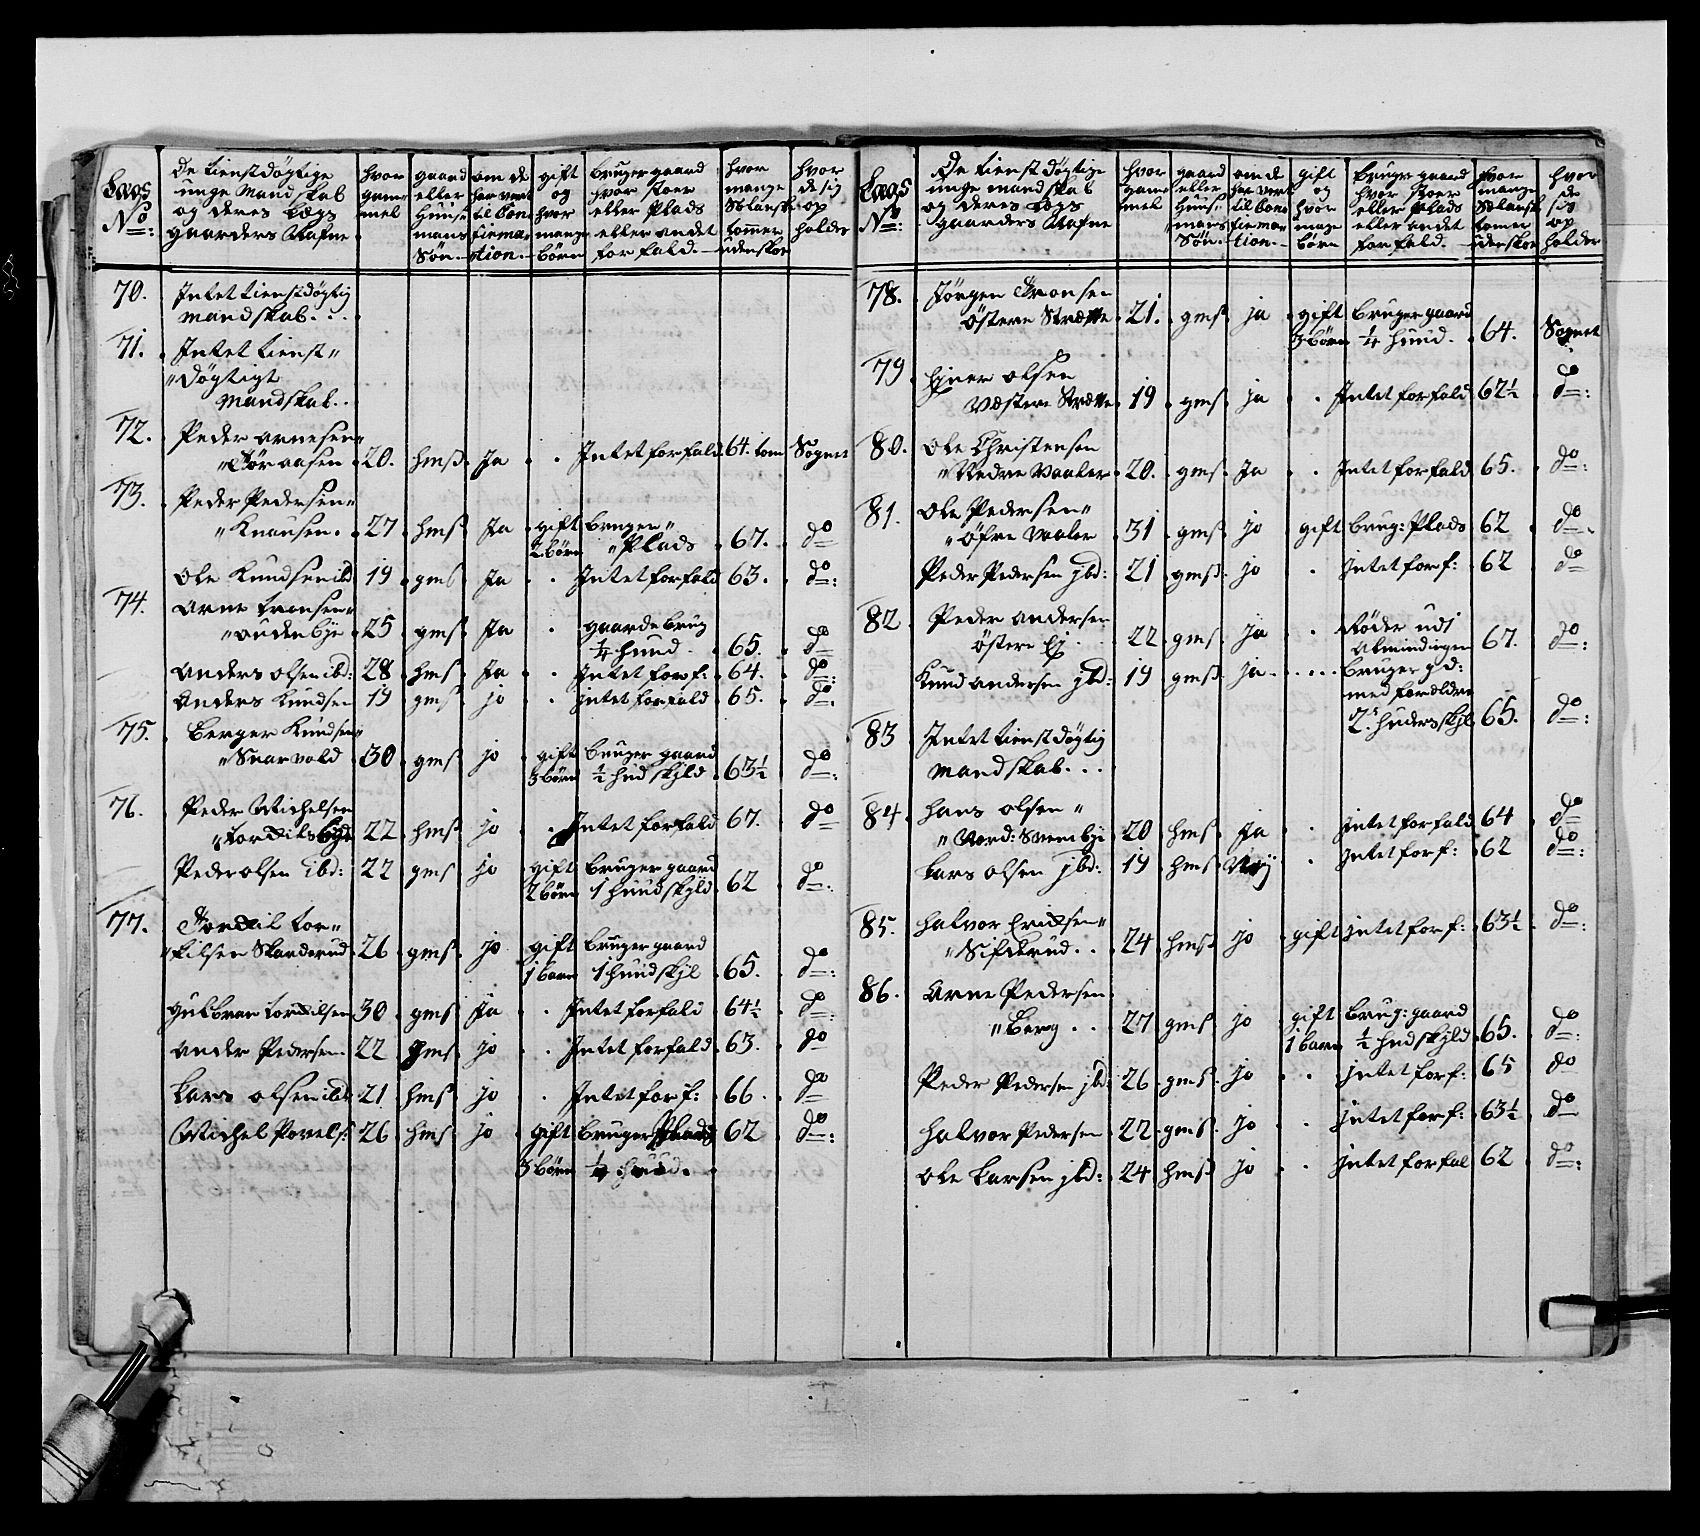 Lægs
No:
De tienstdøgtige
unge Mandskab
og deres Lægs
gaarders Nafne
hvor
gam=
mel
gaard
eller
Huus=
mans
Søn.
om de
har vert
til Con=
firma=
tion.
gift
og
hvor
mange
børn
bruger gaard
hvor stoer
eller Plads
eller andet
forfald.
hvor
mange
Siælansk
tommer
udenskoe
hvor
de sig
op
holder
70. Intet tienstdøgtig
mandskab....
71. Intet tienst"
"døgtigt
Mandskab..
72. Peder Arnesen
aasen 20. hmsß. Ja . . Intet forfald. 64. tom Sognet
73. Peder Pedersen"
"Knansen. 27 hmß Ja gift brugen" 67. do
2 børn "Plads
Ole Knudsen ibd 19 gms Ja . . Intet forfald 63. do:
74. Arne Tronsen"
"ouden bye 25 gmß. Ja . gaarde brug
¼ huud. 65. do
Anders Olsen ibd: 28 hmß. Ja . . Intet forf: 64. do:
Anders Knudsen 19 gmß jo . . intet forfald 65. do.
75. Berger Knudsen"
"Snarvold 30 gmß. jo gift bruger gaard
3 børn ½ hud skyld 63½ do:
76. Peder Michelsen
"Tordils bye 22 hmß jo . Intet forfald 67. do
Peder Olsen ibd: 22 gms jo gift bruger gaard
2 børn 1 huud skyld 62 do:
77. Tordil Tor"
"kilsen Skanderud 26 gmß. jo gift bruger gaard
1 barn 1 huud skyl 65. do:
Gulbran Tordilsen 30 gmß Ja . . Intet forfald 64½ do:
Ander Pedersen 22 gms. jo . . Intet forfald 63. do
Lars Olsen ibd 21 hmß jo . Intet forf: 66. do
Michel Povels: 26 hmß jo gift bruger Plads 62 do:
3 børn ¼ huud.
Lægs
No:
De tienstdøgtige
unge mandskab
og deres Lægs
gaarders Nafne
hvor
gam=
mel
gaard
eller
Huus=
mans
Søn.
om de
har vert
til Con=
firma=
tion.
gift
og
hvor
mange
børn
bruger gaard
hvor stoer
eller Plads
eller andet
forfald.
hvor
mange
Siælansk
tomer
udenskoe
hvor
de
sig
op
holder
78. Jørgen Tronsen
Østere Strætte 21. gmß ja gift bruger gaard
3 børn ¼ huud. 64. Sognet
79 Ejner Olsen
Væstere Strætte 19 gmß ja . . Intet forfald 62½ do:
80. Ole Christensen
"Nedre Vaaler 20. gms. Ja . . Intet forfald 65. do:
81. Ole Pedersen"
"Øfre Vaaler 31 gmß jo gift brug: Plads 62 do:
Peder Pedersen jbd: 21 gmß. jo . intet forf: 62 do
82 Peder Andersen
Østere Ej 22 gmß. ja . . Røder udj
Almindingen 67. do:
Knud Andersen jbd: 19 gmß ja. .... bruger gd:
med forældre
2 huders skyl 65. do:
83 Intet tienstdøgtig
Mandskab...
84. Hans Olsen"
"Nord: Svenbye 20 hmß. Ja . . intet forfald 64 do
Lars Olsen jbd: 19 hmß Nej . intet forf: 62 do:
85. Halvor Eridsen"
"Sifderud.. 24 hmß jo gift intet forf: 63½ do:
86. Arne Pedersen
"Berg.. 27 gmß jo gift brug: gaard
1 barn ½ hud skyld 65. do:
Peder Pedersen jbd: 26 gmß. jo . . intet forf: 65 do
Halvor Pedersen 22 gmß. jo . . intet forf: 63½ do
Ole Larsen jbd: 24 hmß jo . . intet forfal 62 do: